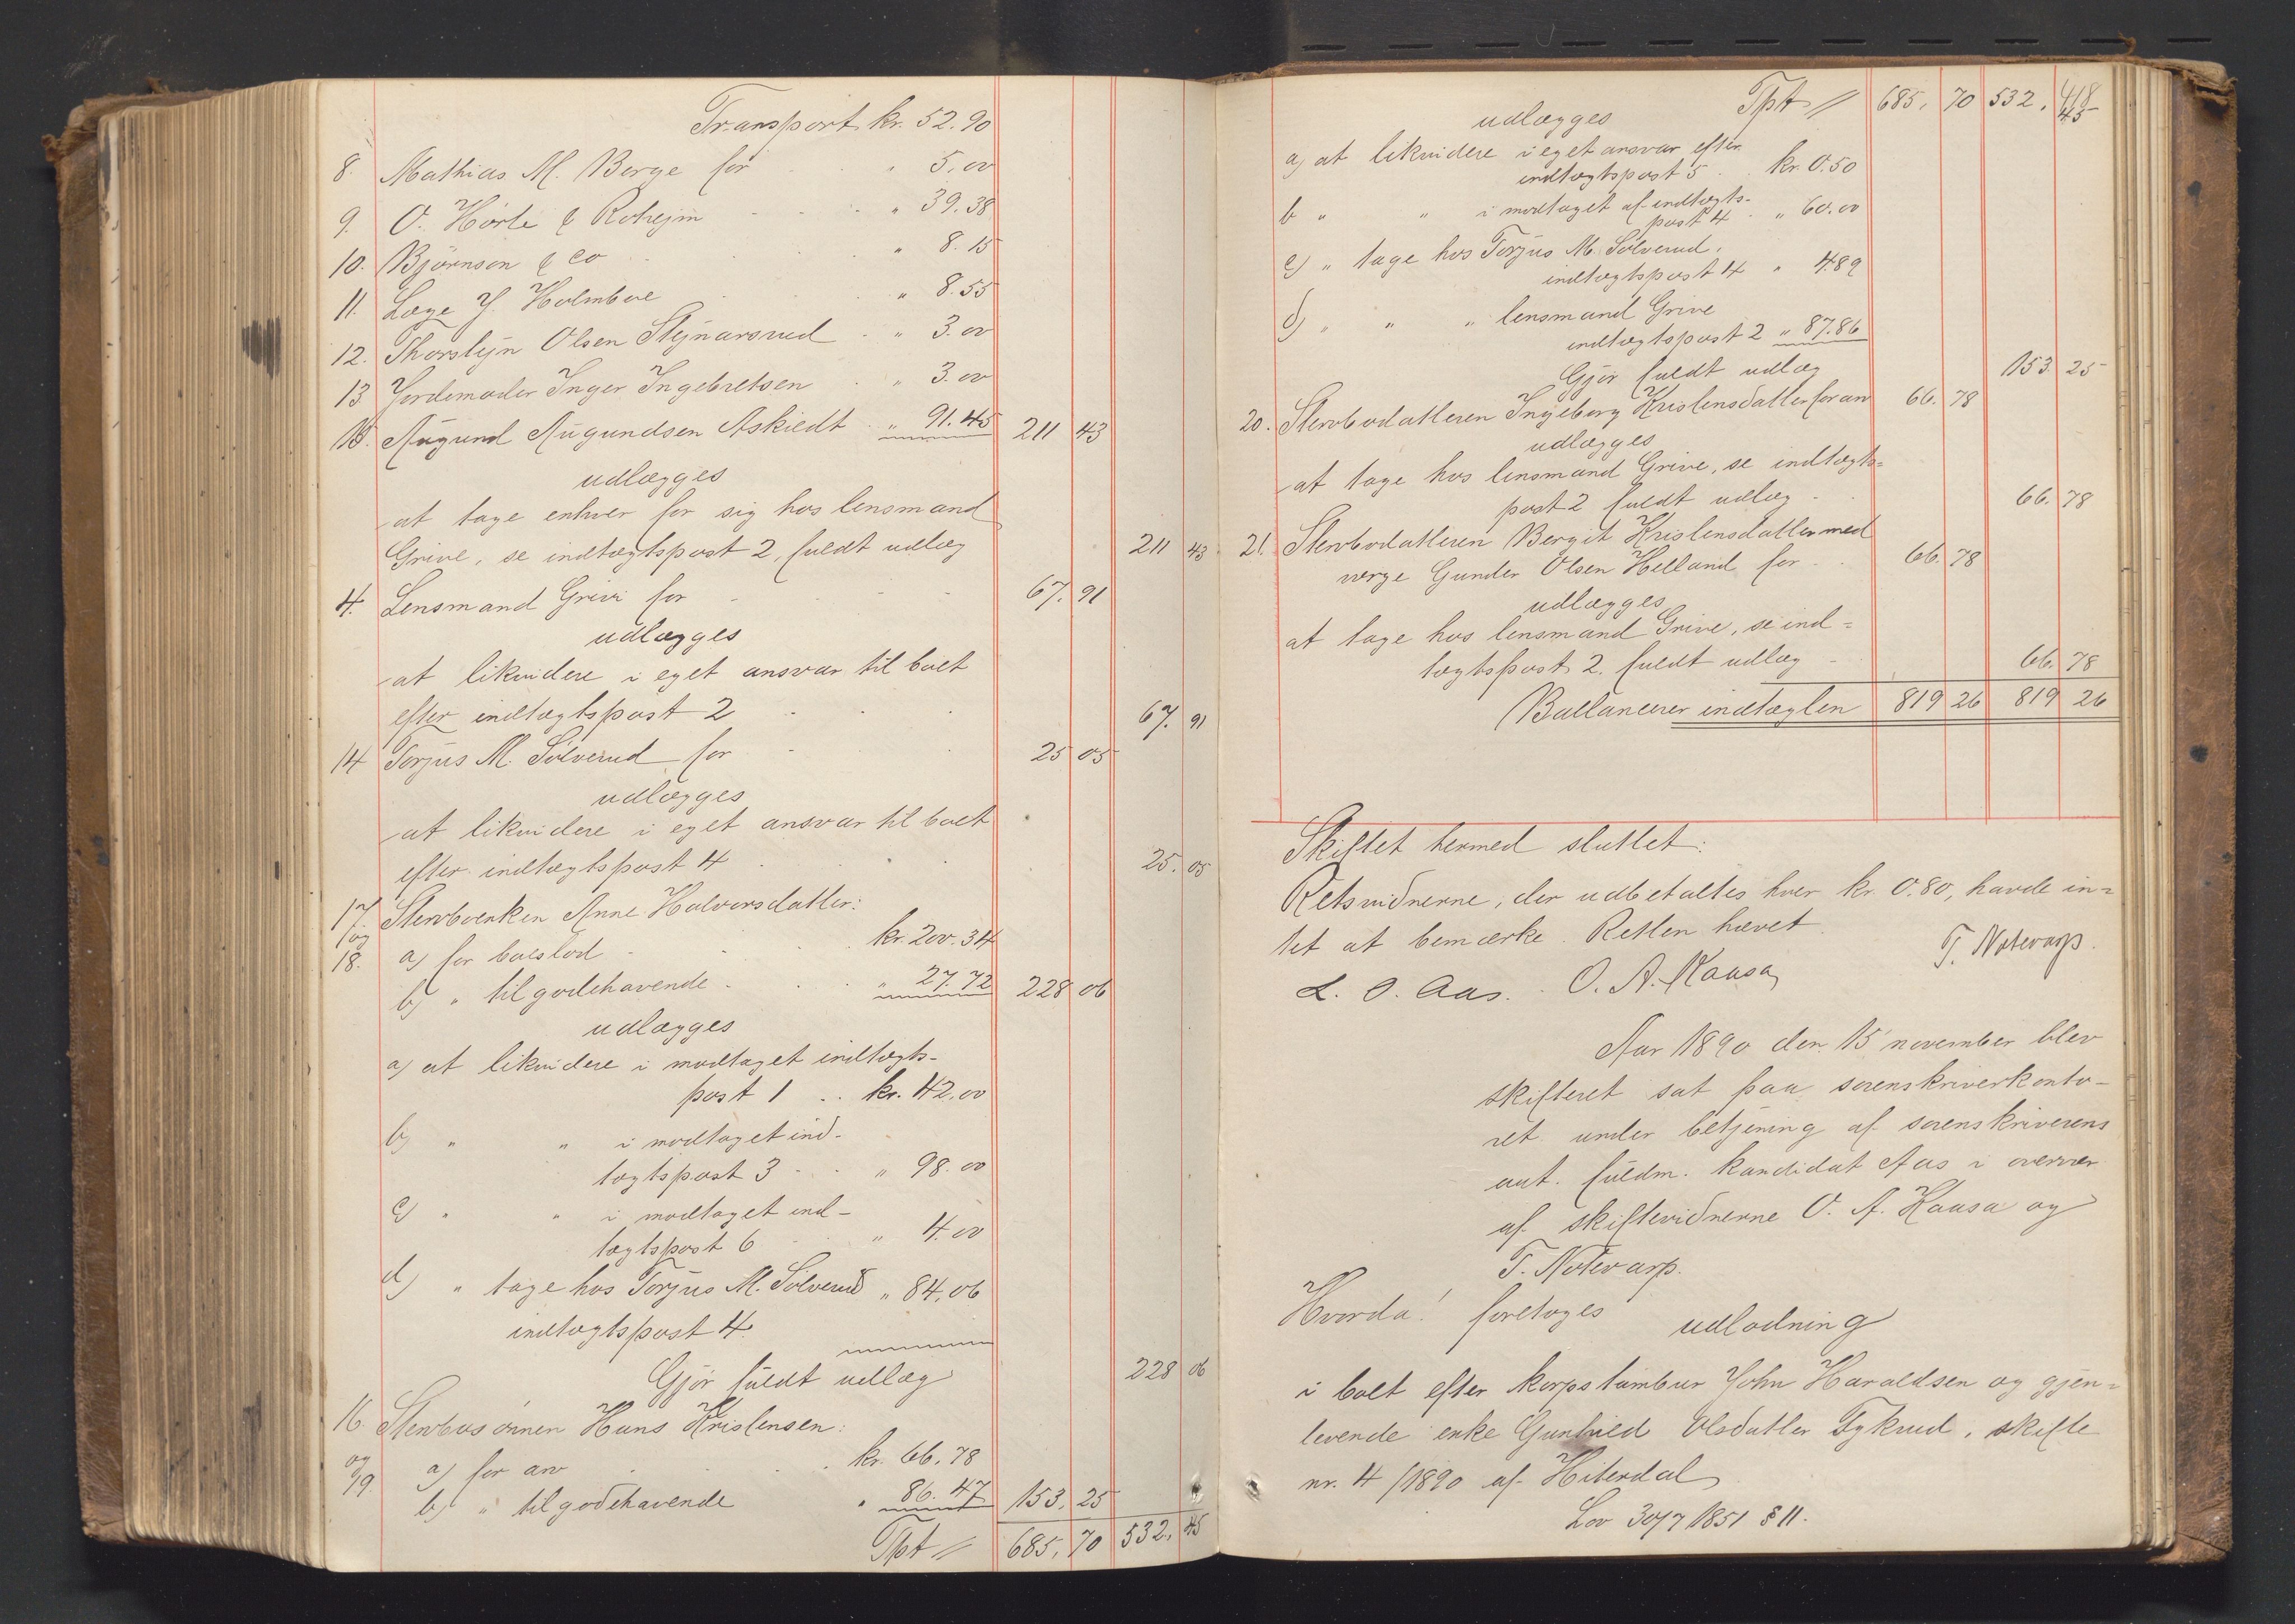 Transport kr. 52.90
8. Mathias M. Berge for " 5.00
9. O. Hørte & Roheim " 39.38
10. Bjørnson & co " 8.15
11. Læge J. Holmboe " 8.55
12. Thorstejn Olsen Stejnarsrud " 3.00
13. Jordemoder Inger Ingebretsen " 3.00
15. Aùgund Aùgundsen Askildt " 91.45 211 43
udlægges
at tage enhver for sig hos lensmand
Grive, se indtægtspost 2, fuldt udlæg 211 43
4. Lensmand Grivi for 67. 91
udlægges
at likvidere i eget ansvar til boet
efter indtægtspost 2 67. 91
14 Torjus M. Sølverud for 25 05
udlægges
at likvidere i eget ansvar til boet
efter indtægtspost 4 25. 05
17. Stervboenken Anne Halvorsdatter:
og
18. a) for boeslod kr. 200.34
b) " tilgodehavende " 27.72 228 06
udlægges
a) at likvidere i modtaget indtægts-
post 1 .. kr. 42.00
b) " " i modtaget ind-
tægtspost 3 " 98.00
c) " " i modtaget ind-
tægtspost 6 " 4.00
d) " tage hos Torjus M. Sølverud " 84.06
indtægtspost 4.
Gjør fuldt udlæg 228 06
16. Stervbosønnen Hans Kristensen:
og
19. a) for arv kr. 66.78
b) " tilgodehavende " 86.47 153. 25
Tpt // 685. 70 532. 45
Tpt // 685. 70 532. 45
udlægges
a) at likvidere i eget ansvar efter
indtægtspost 5 kr. 0.50
b " " i modtaget af indtægts-
post 4 " 60.00
c) " tage hos Torjus M. Sølverud,
indtægtspost 4 " 4.89
d) " " " lensmand Grive
indtægtspost 2 " 87.86
Gjør fuldt udlæg 153. 25
20. Stervbodatteren Ingeborg Kristensdatter for arv 66. 78
udlægges
at tage hos lensmand Grive, se indtægts=
post 2 fuldt udlæg 66. 78
21. Stervbodatteren Bergit Kristensdatter med
verge Gunder Olsen Helland for 66. 78
udlægges
at tage hos lensmand Grive, se ind=
tægtspost 2. fuldt udlæg 66. 78
Ballancerer indtægten 819 26 819 26
Skiftet hermed sluttet:
Retsvidnerne, der udbetaltes hver kr. 0.80, havde in=
tet at bemærke. Retten hævet.
T. Notevarp.
L. O. Aas. O. A. Kaasa
Aar 1890 den 15 november blev
skifteret sat paa sorenskriverkonto-
ret under betjening af sorenskriverens
aut. fuldm. kandidat Aas i overvær
af skiftevidnerne O. A. Kaasa og
T. Notevarp.
Hvorda! foretoges udlodning
i boet efter korpstambur John Haraldsen og gjen=
levende enke Gunhild Olsdatter Tykrud, skifte
nr. 4/1890 af Hiterdal
Lov 30/7 1851 § 11.